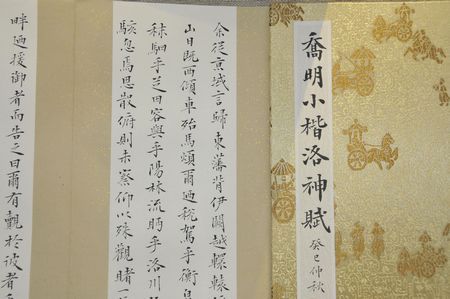 喬明小楷洛神賦
癸巳仲秋
余從京域言歸東藩背伊闕越轘轅
山日既西傾車殆馬煩爾迺稅駕乎衡皋
秣駟乎芝田容與乎陽林流眄乎洛川
駭忽焉思散俯則未察仰以殊觀睹一
畔迺援御者而告之曰爾有覿於彼者